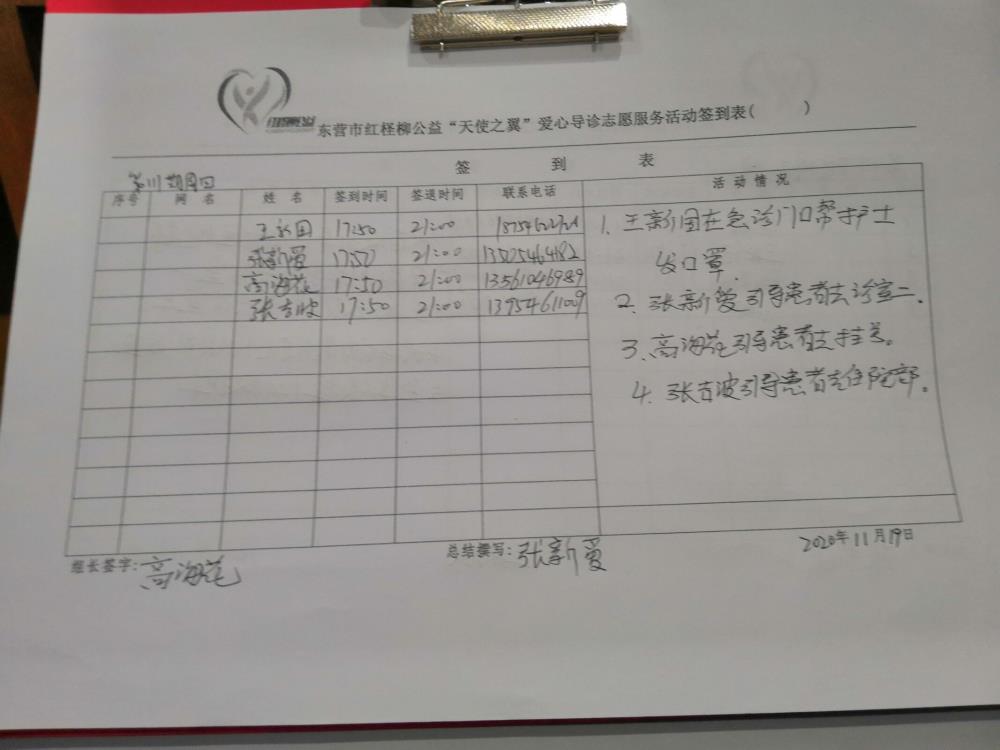 东营市红柽柳公益“天使之翼”爱心导诊志愿服务活动签到表( )
签 到 表
第111期周四
序号 网 名 姓 名 签到时间 签退时间 联系电话 活动情况
王新国 17:50 21:00
张新爱 17:50 21:00 13505464682
高海花 17:50 21:00 13561046989
张吉波 17:50 21:00 13954611009
1. 王新国在急诊门口帮护士
发口罩.
2. 张新爱引导患者去诊室二.
3. 高海花引导患者去挂号。
4. 张吉波引导患者去住院部。
组长签字:高海花 总结撰写:张新爱 2020年11月19日